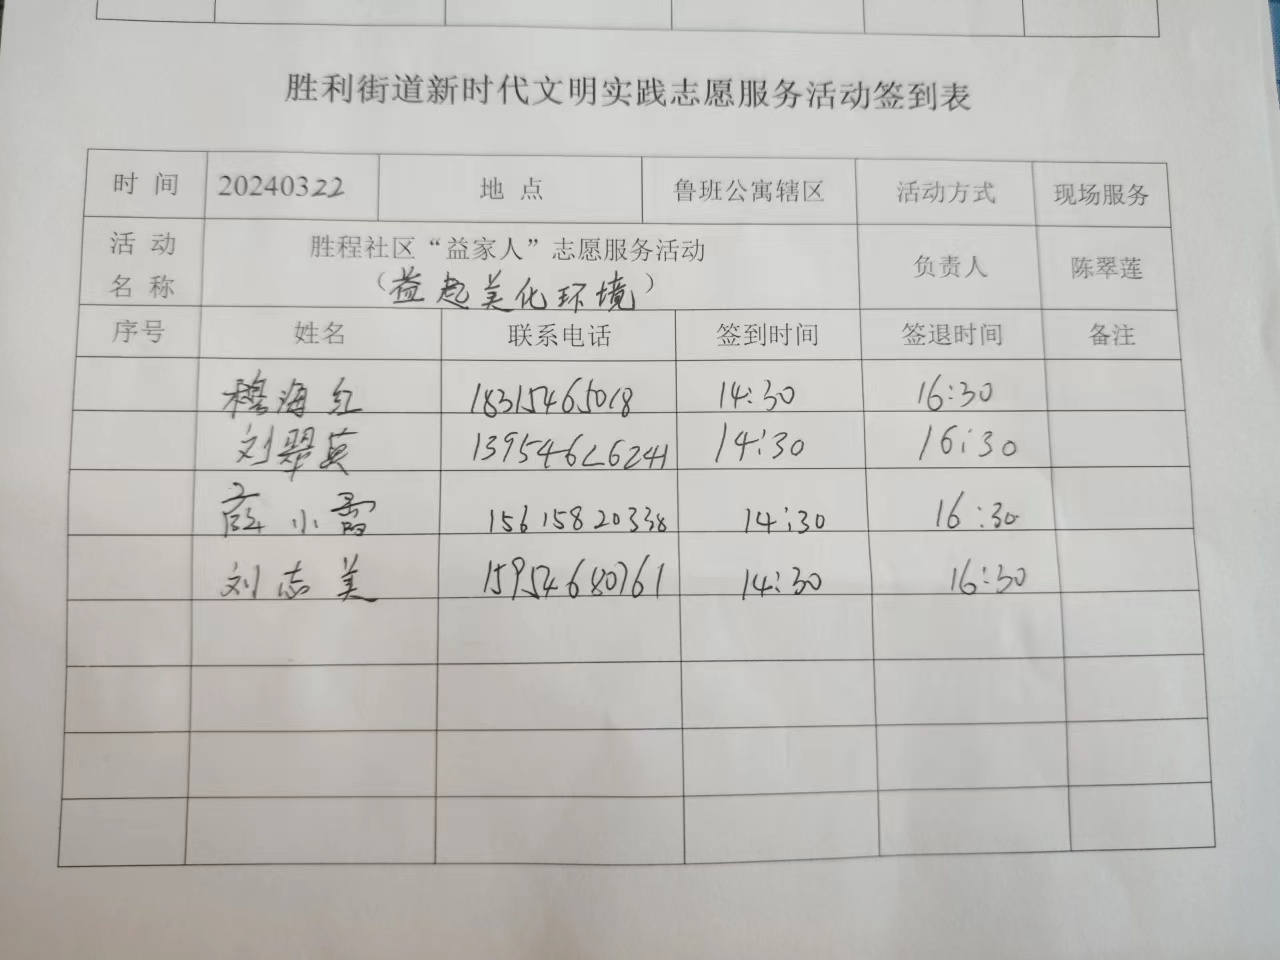 胜利街道新时代文明实践志愿服务活动签到表
时 间 20240322 地 点 鲁班公寓辖区 活动方式 现场服务
活 动 名 称 胜程社区“益家人”志愿服务活动 负责人 陈翠莲
（益起美化环境）
序号 姓名 联系电话 签到时间 签退时间 备注
穆海红 18315465018 14:30 16:30
刘翠英 14:30 16:30
薛小雪 15615820338 14:30 16:30
刘志美 15954680761 14:30 16:30